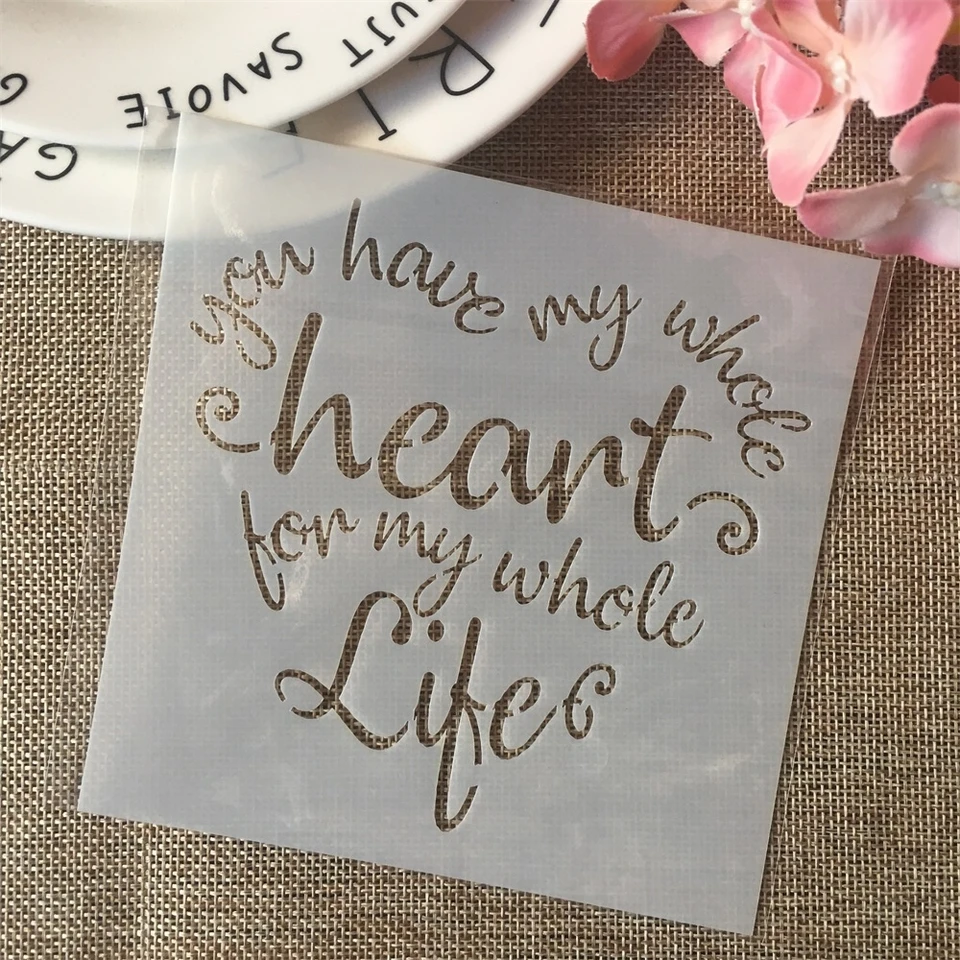 UIT SAVOIE
GÂ
RI
you have my whole
heart
for my whole
Life